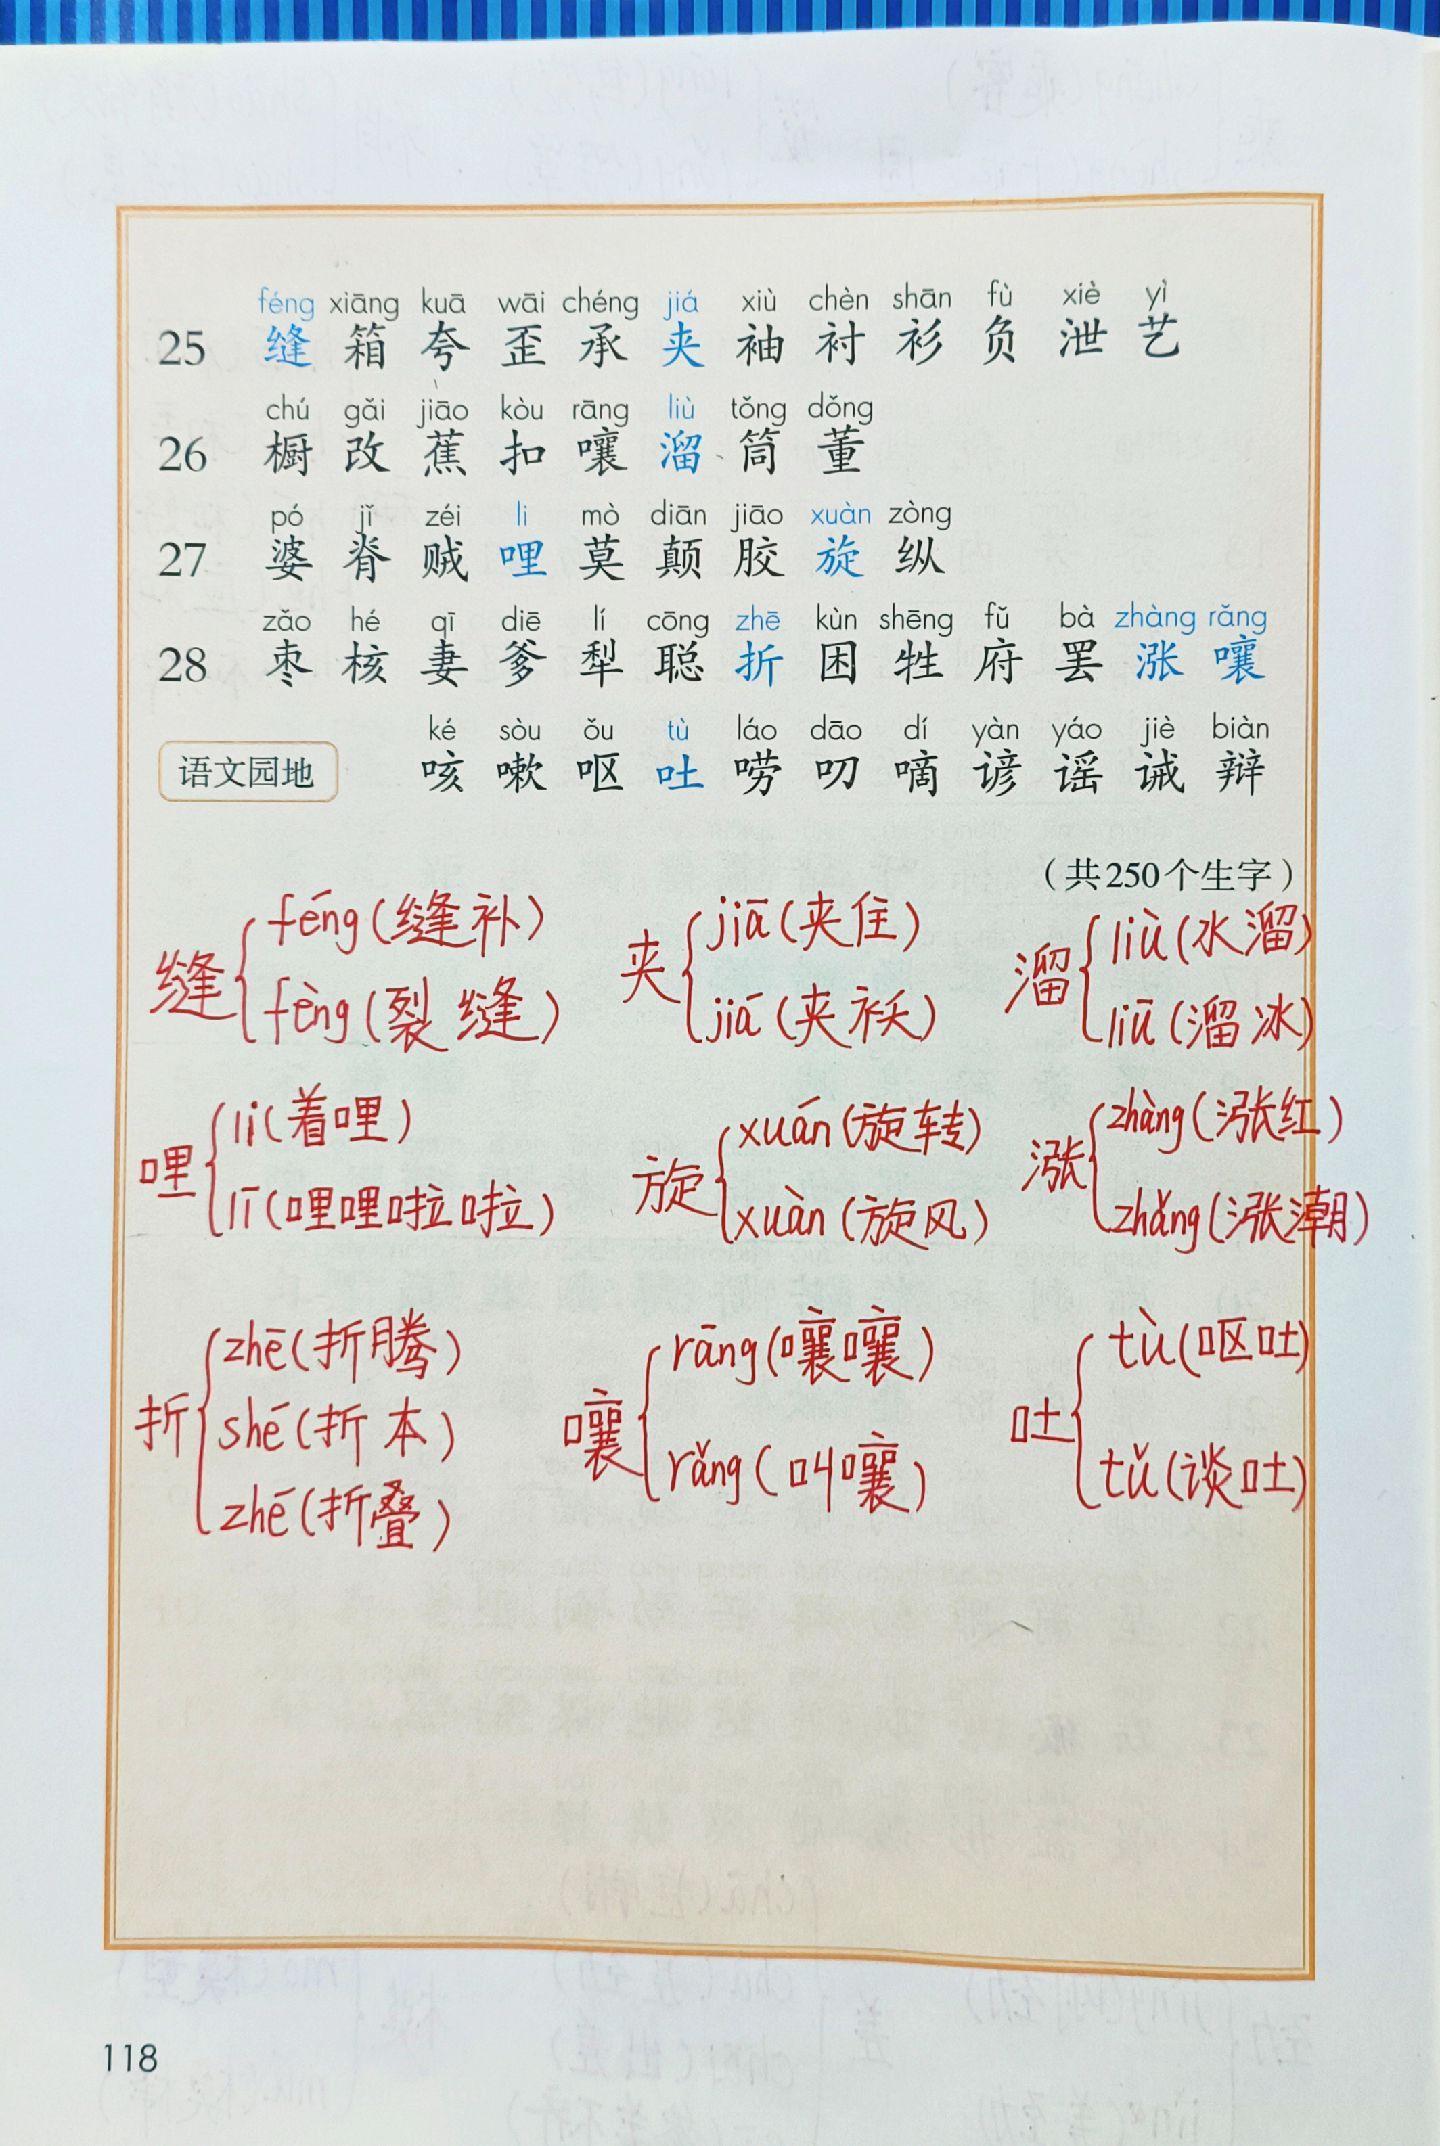 féng xiāng kuā wāi chéng jiá xiù chèn shān fù xiè yì
25 缝 箱 夸 歪 承 夹 袖 衬 衫 负 泄 艺
chú gǎi jiāo kòu rāng liù tǒng dǒng
26 橱 改 蕉 扣 嚷 溜 筒 董
pó jǐ zéi li mò diān jiāo xuàn zòng
27 婆 脊 贼 哩 莫 颠 胶 旋 纵
zǎo hé qī diē lí cōng zhē kùn shēng fǔ bà zhàng rǎng
28 枣 核 妻 爹 犁 聪 折 困 牲 府 罢 涨 嚷
ké sòu ǒu tù láo dāo dí yàn yáo jiè biàn
语文园地 咳 嗽 呕 吐 唠 叨 嘀 谚 谣 诫 辩
（共250个生字）
缝 féng(缝补)
fèng(裂缝)
夹 jiā(夹住)
jiá(夹袄)
溜 liù(水溜)
liū(溜冰)
哩 li(着哩)
lī(哩哩啦啦)
旋 xuán(旋转)
xuàn(旋风)
涨 zhàng(涨红)
zhǎng(涨潮)
折 zhē(折腾)
shé(折本)
zhé(折叠)
嚷 rāng(嚷嚷)
rǎng(叫嚷)
吐 tù(呕吐)
tǔ(谈吐)
118